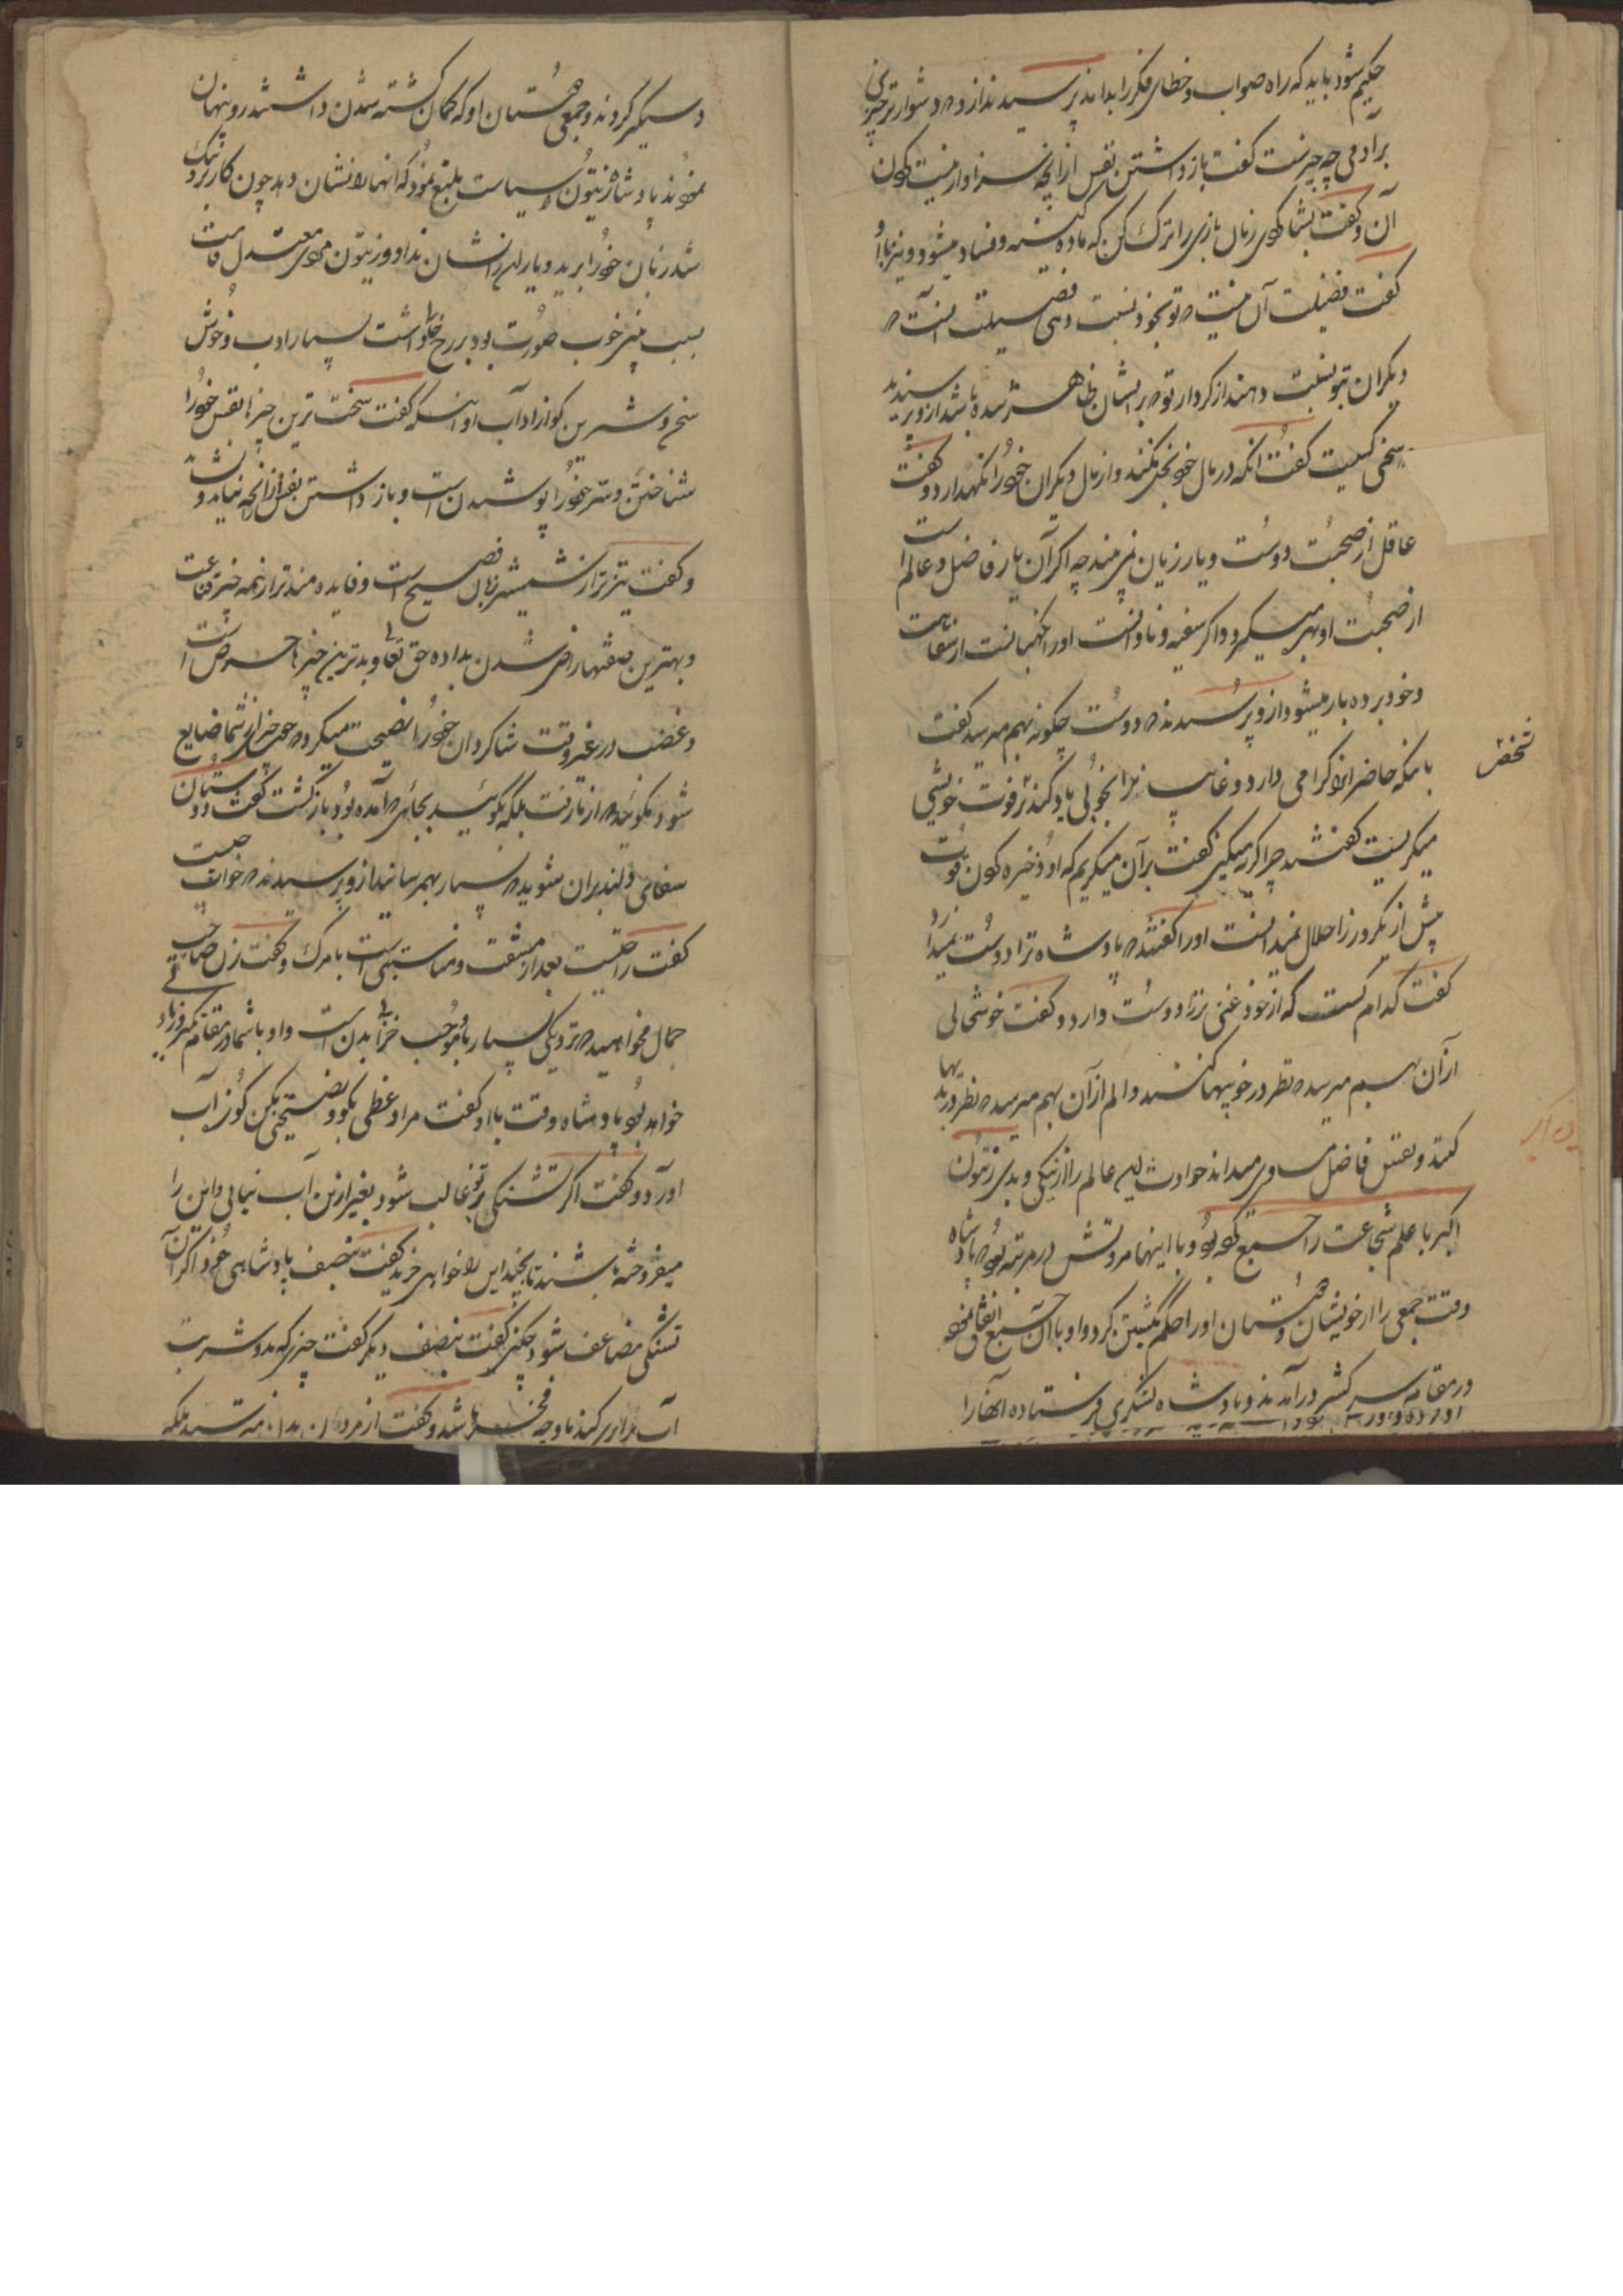 حکیم شود باید که راه صواب و خطای فکر را بداند پرسیدند ازو که دشوارترین چیزی
بر آدمی چه چیزست گفت باز داشتن نفس از آنچه سزاوار نیست کردن
آن و گفت بشما که زبان بازی را ترک کن که ماده کینه و فساد میشود و نیز با او
گفت فضیلت آن نیست که تو بخود نسبت دهی فضیلت آنست که
دیگران بتو نسبت دهند از کردار تو که بر ایشان ظاهر شده باشد ازو پرسیدند
سخی کیست گفت آنکه در مال خود بخل نکند و از مال دیگران خود را نگهدارد و گفت
عاقل از صحبت دوست و یار زیان نمی بیند چه اگر آن یار فاضل و عالم است
از صحبت او بهره میگیرد و اگر سفیه و نادانست او را نگهبانست از سفاهت
و خود بردبار میشود ازو پرسیدند که دوست چگونه بهم میرسد گفت
بآنکه حاضر او را گرامی دارد و غایب را بخوبی یاد کند بر فوت خویشی
شخصی
میگریست گفتند چرا گریه میکنی گفت بر آن میگریم که او ذخیره کردن قوت
پیش از یکروز را حلال نمیدانست او را گفتند که پادشاه ترا دوست نمیدارد
گفت کدام کست که از خود غنی تر را دوست دارد و گفت خوشحالی
از آن بهم میرسد که نظر در خوبیها کنند و الم از آن بهم میرسد که نظر در بدیها
کنند و نفس فاضل مساوی میداند حوادث این عالم را از نیکی و بدی زیتون
اکبر با علم شجاعت را جمع کرده بود و با اینها مروتش در مرتبه بود که پادشاه
وقت جمعی را از خویشان و دوستان او را حکم بکشتن کرد و او با آن جمع اتفاق نموده
در مقام سرکشی درآمدند و پادشاه لشکری فرستاده آنها را
دستگیر کردند و جمعی دوستان او که گمان کشته شدن داشتند رو پنهان
نمودند پادشاه زیتون را سیاست بلیغ نمود که آنها را نشان دهد چون کار نزدیک
شد زبان خود را برید و یاران را نشان نداد و زیتون مردی معتدل قامت
سبب بینی خوب صورت بود بر رخ خال داشت بسیار ادب و خوش
سخن و شیرین گو از آداب اوست که گفت سخت ترین چیزها نفس خود را
شناختن و سر خود را پوشیدنست و باز داشتن نفس از آنچه نباید و نشاید
و گفت تیزتر از شمشیر زبان فصیح است و فایده مندتر از همه چیز قناعت
و بهترین صفتها راضی شدن بداده حق تعالی و بدترین چیزها حرص است
و غضب در غیر وقت شاگردان خود را نصیحت میکرد که چون چیزی از شما ضایع
شود مگوئید که از ما رفت بلکه بگوئید بجائی که آمده بود بازگشت گفت دوستان
سفاهی و لئیمان مشوید که بسیار بهم رسانند ازو پرسیدند که خواب چیست
گفت راحتیست بعد از مشقت و مناسبتی است با مرگ و گفت زن صاحب
جمال مخواهید که نزدیکی بسیار با او موجب خرابی بدن است و او با شما در مقام کبر و ناز
خواهد بود پادشاه وقت با او گفت مرا وعظی بگو و نصیحتی بکن کوزه آب
آورد و گفت اگر تشنگی بر تو غالب شود بغیر ازین آب نیابی و این را
میفروخته باشند تا بچند این را خواهی خرید گفت بنصف پادشاهی خود و اگر آن
تشنگی مضاعف شود چکنی گفت بنصف دیگر گفت چیزی که بدو شربت
آب برابری کند باو چه فخر باشد و گفت